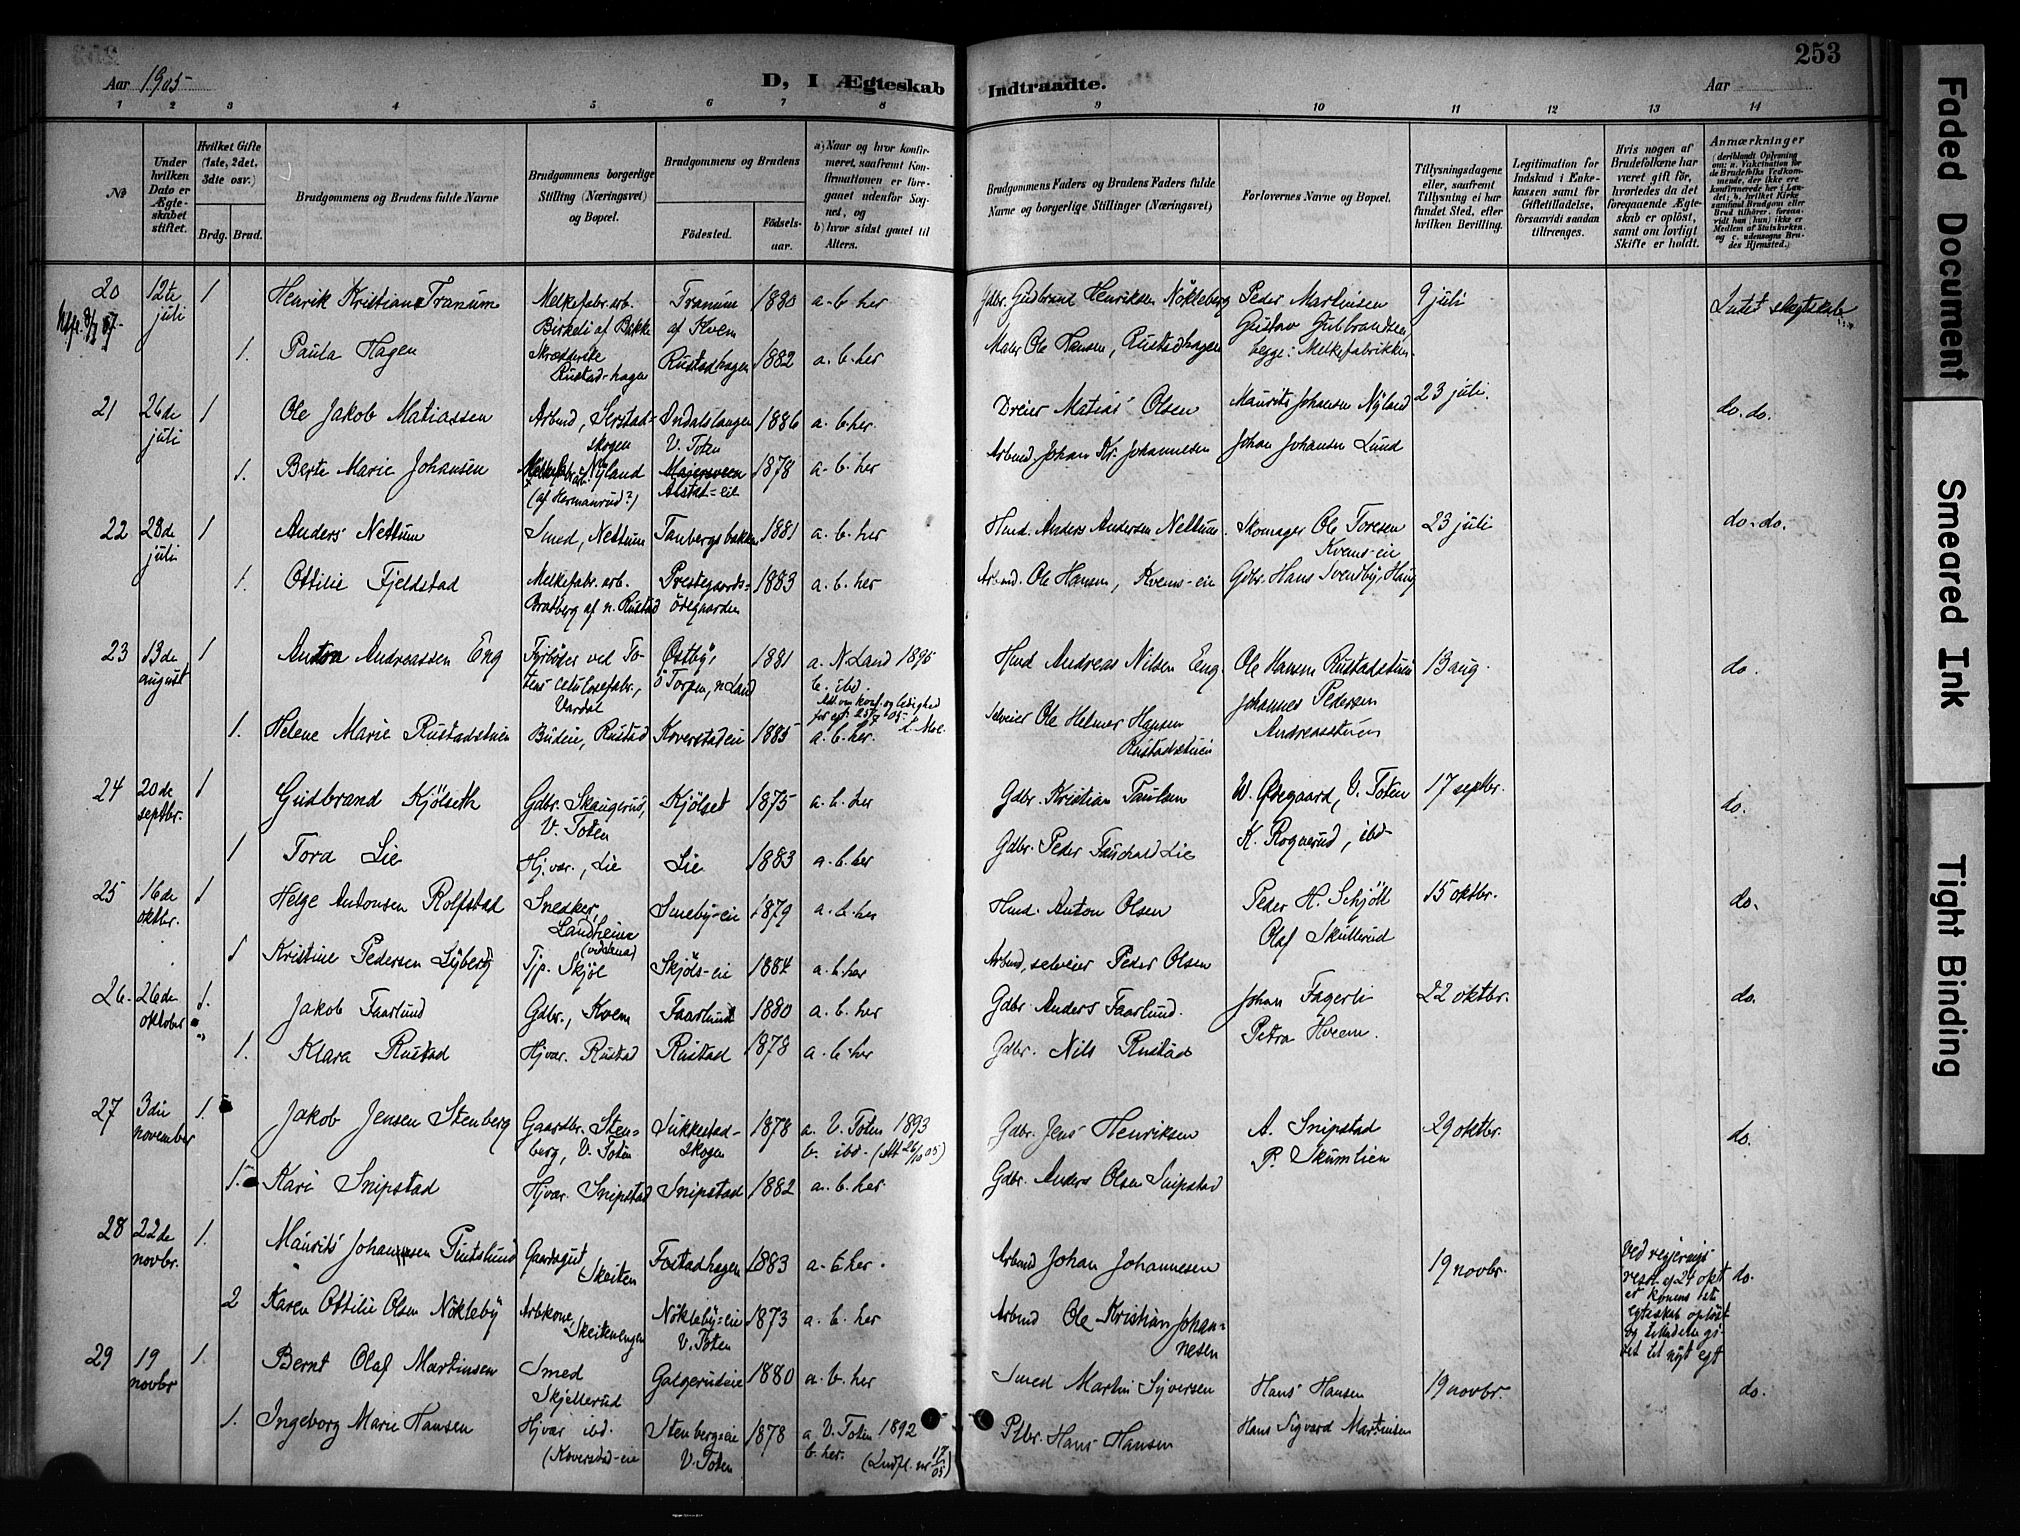 253
Aar 1905
D, I Ægteskab Indtraadte.
Aar
1 2 3 4 5 6 7 8 9 10 11 12 13 14
№
Under hvilken Dato er Ægteskabet stiftet.
Hvilket Gifte (1ste, 2det, 3die osv.)
Brdg. Brud.
Brudgommens og Brudens fulde Navne
Brudgommens borgerlige Stilling (Næringsvei) og Bopæl.
Brudgommens og Brudens
Fødested.
Fødselsaar.
a) Naar og hvor konfirmeret, saafremt Konfirmationen er foregaaet udenfor Sognet, og
b) hvor sidst gaaet til Alters.
Brudgommens Faders og Brudens Faders fulde Navne og borgerlige Stillinger (Næringsvei)
Forlovernes Navne og Bopæl.
Tillysningsdagene eller, saafremt Tillysning ei har fundet Sted, efter hvilken Bevilling.
Legitimation for Indskud i Enkekassen samt for Giftetilladelse, forsaavidt saadan tiltrænges.
Hvis nogen af Brudefolkene har været gift før, hvorledes da det foregaaende Ægteskab er opløst, samt om lovligt Skifte er holdt.
Anmærkninger
20 12te juli 1 Henrik Kristian Tranum Melkefabr. arb. Berkeli af Bakke Tranum af Kvem 1880 a. b. her Gdbr. Gudbrand Henriksen Nökleberg Peder Martinsen 9 juli Intet slegtskab
1. Paula Hagen Skrædderske Rustad-hagen Rustadhagen 1882 a. b. her Maler Ole Hansen, Rustadhagen Gustav Gulbrandsen begge: Melkefabrikken
21 26de juli 1 Ole Jakob Matiassen Arbmd, Sirstadskogen V. Toten 1886 a. b. her Dreier Matias Olsen Maurits Johansen Nyland 23 juli. do. do.
1. Berte Marie Johansen Nyland (af Hermanrud?) 1878 a. b. her Arbmd Johan Kr. Johannesen Johan Johansen Lund
22 28de juli 1 Anders Nettum Smed, Nettum Tanbergsbakken 1881 a. b. her Hmd. Anders Andersen Nettum Skomager Ole Toresen Kvems-eie 23 juli do. do.
1. Ottilie Fjeldstad Melkefabr. arb. Bratberg af n. Rustad Prestegaards-ödegaarden 1883 a. b. her Arbmd. Ole Hansen, Kvems-eie Gdbr. Hans Svendby, Haug
23 13de august 1 Anton Andreassen Eng Fyrböter ved Totens celulosefabr., Vardal Östby, ö Torpen, n Land 1881 a. N. Land 1896 b. ibd. Hmd Andreas Nilsen Eng Ole Hansen Rustadstuen 13 aug. do.
1. Helene Marie Rustadstuen Budeie, Rustad Koverstadeie 1885 a. b. her. Selveier Ole Helmer Hansen Rustadstuen Johannes Pedersen Andreasstuen
24 20de septbr. 1 Gudbrand Kjölseth Gdbr. Skaugerud, V. Toten Kjölset 1875 a. b. her Gdbr. Kristian Paulsen W. Ödegaard, V. Toten 17 septbr. do.
1 Tora Lie Hj. var., Lie Lie 1883 a. b. her Gdbr. Peder Fauchald Lie K. Rognerud, ibd
25 16de oktbr. 1 Helge Antonsen Rolfstad Snedker, Landheim Smeby-eie 1879 a. b. her Hmd. Anton Olsen Peder H. Schjöll 15 oktbr. do.
1 Kristine Pedersen Lyberg Tjp. Skjöl Skjöls-eie 1884 a. b. her Arbmd, selveier Peder Olsen Olaf Skullerud
26. 26de oktober 1. Jakob Faarlund Gdbr., Kvem Faarlund 1880 a. b. her Gdbr Anders Faarlund. Johan Fagerli 22 oktbr. do.
1. Klara Rustad Hjvar. Rustad Rustad 1878 a. b. her Gdbr. Nils Rustad Petra Hveem.
27 3die november 1. Jakob Jensen Stenberg Gaardbr. Stenberg, V. Toten Sukkestadskogen 1878 a. V. Toten 1893 b. ibd. (Att 26/10 05) Gdbr. Jens Henriksen A. Snipstad 29 oktbr. do.
1. Kari Snipstad Hjvar. Snipstad Snipstad 1882 a. b. her Gdbr. Anders Olsen Snipstad P. Skumlien
28 22de novbr. 1. Maurits Johannesen Gaardsgut Skeiten 1883 a. b. her. Arbmd Johan Johannesen 19 novbr. ved regjerings resol. af 24 okt er konens 1ste egteskab oplöst og tilladelse gitet til nyt egt do.
2 Karen Ottilie Olsen Nökleby Arbkone, Skeitenengen Nökleby-eie V. Toten 1873 a. b. her Arbmd Ole Kristian Johannesen
29 19 novbr 1. Bernt Olaf Martinsen Smed Skjellerud Galgerudeie 1880 a. b. her Smed Martin Syversen Hans Hansen 19 novbr. do.
1. Ingeborg Marie Hansen Hjvar ibd. (Koverstad-eie Stenbergseie V. Toten 1878 a. V. Toten 1892 b. her. (Indfl. nr 17/05) Plbr. Hans Hansen Hans Sigvard Martinsen
Faded Document
Smeared Ink
Tight Binding